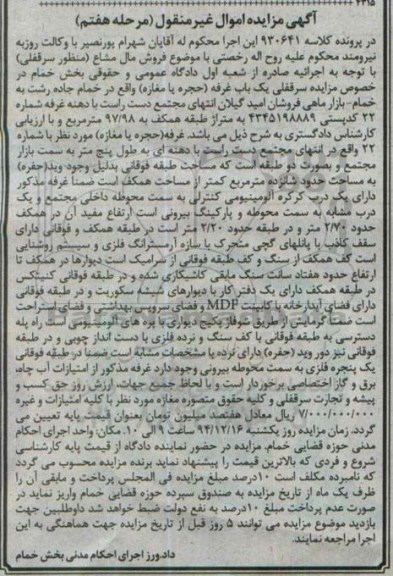 آگهی مزایده اموال غیرمنقول (مرحله هفتم)
در پرونده کلاسه ۹۳۰۶۴۱ این اجرا محکوم له آقایان شهرام پورنصیر با وکالت روزبه
نیرومند محکوم علیه روح اله رخصتی با موضوع فروش مال مشاع (منظور سرقفلی)
با توجه به اجرائیه صادره از شعبه اول دادگاه عمومی و حقوقی بخش خمام در
خصوص مزایده سرقفلی یک باب غرفه (حجره یا مغازه) واقع در خمام جاده رشت به
خمام- بازار ماهی فروشان امید گیلان انتهای مجتمع دست راست با دهنه غرفه شماره
۲۲ کدپستی ۴۳۴۵۱۹۸۸۸۹ به متراژ طبقه همکف به ۹۷/۹۸ مترمربع و با ارزیابی
کارشناس دادگستری به شرح ذیل می باشد. غرفه(حجره یا مغازه) مورد نظر با شماره
۲۲ واقع در انتهای مجتمع دست راست با دهنه ای به طول پنج متر به سمت بازار
مجتمع و بصورت دو طبقه است که مساحت طبقه فوقانی بدلیل وجود وید(حفره)
به مساحت حدود شانزده مترمربع کمتر از مساحت همکف است ضمناً غرفه مذکور
دارای یک درب کرکره آلومینیومی کنترلی به سمت محوطه داخلی مجتمع و یک
درب مشابه به سمت محوطه و پارکینگ بیرونی است ارتفاع مفید آن در همکف
حدود ۲/۷۰ متر و در طبقه حدود ۲/۲۰ متر است در طبقه همکف و فوقانی دارای
سقف کاذب با پانلهای گچی متحرک با سازه آرمسترانگ فلزی و سیستم روشنایی
است کف همکف از سنگ و کف طبقه فوقانی از سرامیک است دیوارها در همکف تا
ارتفاع حدود هفتاد سانت سنگ مابقی کاشیکاری شده و در طبقه فوقانی کنیتکس
در طبقه همکف دارای یک دفتر کار با دیوارهای شیشه سکوریت و در طبقه فوقانی
دارای فضای آبدارخانه با کابینت MDF و فضای سرویس بهداشتی و فضای استراحت
است ضمناً گرمایش از طریق شوفاژ پکیج دیواری با پره های آلومینیومی است راه پله
دسترسی به طبقه فوقانی با کف سنگ و نرده فلزی با دست انداز چوبی و در طبقه
فوقانی نیز دور وید (حفره) دارای نرده با مشخصات مشابه است ضمناً در طبقه فوقانی
یک پنجره فلزی به سمت محوطه بیرونی وجود دارد غرفه مذکور از امتیازات آب چاه،
برق و گاز اختصاصی برخوردار است و با لحاظ جمیع جهات، ارزش روز حق کسب و
پیشه و تجارت سرقفلی و کلیه حقوق متصوره مغازه مورد نظر با کلیه امتیازات و غیره
۷/۰۰۰/۰۰۰/۰۰۰ ریال معادل هفتصد میلیون تومان بعنوان قیمت پایه تعیین می
گردد. زمان مزایده روز یکشنبه ۹۴/۱۲/۱۶ ساعت ۹ الی ۱۰، مکان: واحد اجرای احکام
مدنی حوزه قضایی خمام، مزایده در حضور نماینده دادگاه از قیمت پایه کارشناسی
شروع و فردی که بالاترین قیمت را پیشنهاد نماید برنده مزایده محسوب می گردد
که نامبرده مکلف است ۱۰درصد مبلغ مزایده فی المجلس پرداخت و مابقی آن را
ظرف یک ماه از تاریخ مزایده به صندوق سپرده حوزه قضایی خمام واریز نماید در
صورت عدم پرداخت مبلغ ۱۰درصد به نفع دولت ضبط خواهد شد داوطلبین جهت
بازدید موضوع مزایده می توانند ۵ روز قبل از تاریخ مزایده جهت هماهنگی به این
اجرا مراجعه نمایند.
دادورز اجرای احکام مدنی بخش خمام